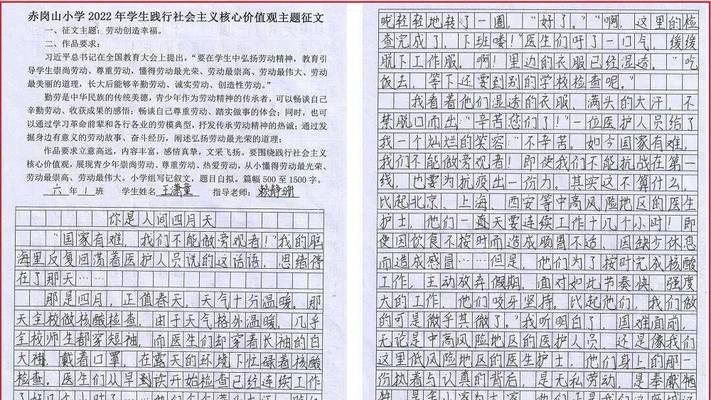 赤岗山小学 2022 年学生践行社会主义核心价值观主题征文
一、征文主题：劳动创造幸福。
二、作品要求：
习近平总书记在全国教育大会上提出，“要在学生中弘扬劳动精神，教育引
导学生崇尚劳动、尊重劳动，懂得劳动最光荣、劳动最崇高、劳动最伟大、劳动
最美丽的道理，长大后能够辛勤劳动、诚实劳动、创造性劳动。”
勤劳是中华民族的传统美德，青少年作为劳动精神的传承者，可以畅谈自己
辛勤劳动、收获成果的感悟；畅谈自己尊重劳动、踏实做事的体会；同时，也可
以通过学习革命前辈和各行各业的劳模典型，抒发传承劳动精神的热诚；通过发
掘身边有意义的劳动故事、奋斗经历，阐述弘扬劳动最光荣的道理；
作品要求立意高远，内容丰富，感情真挚，文采飞扬。要围绕践行社会主义
核心价值观，展现青少年崇尚劳动、尊重劳动，热爱劳动，从小懂得劳动最光荣、
劳动最崇高、劳动最伟大。小学组写记叙文，题目自拟。篇幅 500 至 1500 字。
六 年 1 班 学生姓名 王潇童 指导老师： 赖静珊
你是人间四月天
“国家有难，我们不能做旁观者！”我的脑
海里反复回荡着医护人员说的这话语，思绪停
在了那天……
那是四月，正值春天，天气十分温暖。那
天全校做核酸检查，由于天气格外温暖，几乎
全校师生都穿短袖，而医生们却穿着长袖的白
大褂，戴着口罩，在露天的环境下忙碌着核酸
检查。医生们从早到该开始检查已经连续工作
轻轻地转了一圈，“好了。”“啊，这里的检
查完成了，下班喽！”医生们吁了一口气，缓缓
脱下工作服，啊！里边的衣服已经湿透。“吃
饭去，等下还要到别的学校检查呢。”
我看着他们湿透的衣服，满头的大汗，不
禁脱口而出“辛苦您们！”一位医护人员给了
我一个灿烂的笑容“不辛苦。如今国家有难，
我们不能做旁观者！即使我们不能抗战在第一
线，也要为抗疫出一份力。其实这不算什么，
比起北京、上海、西安等中高风险地区的医生
护士，他们一天要连续工作十几个小时！即
使因饮食不按时而造成肠胃不适，因缺少休息
而造成感冒……但是，他们为了按时完成核酸
工作，主动放弃假期。面对如此节奏快，强度
大的工作，他们咬牙坚持。比起他们，我们做
的可是微乎其微了。”我听明白了，国难面前，
无论是中高风险地区的医护人员，还是像我们
这里低风险地区的医生护士，他们身上的那一
份执着与认真的背后，是无私劳动，是奉献牺